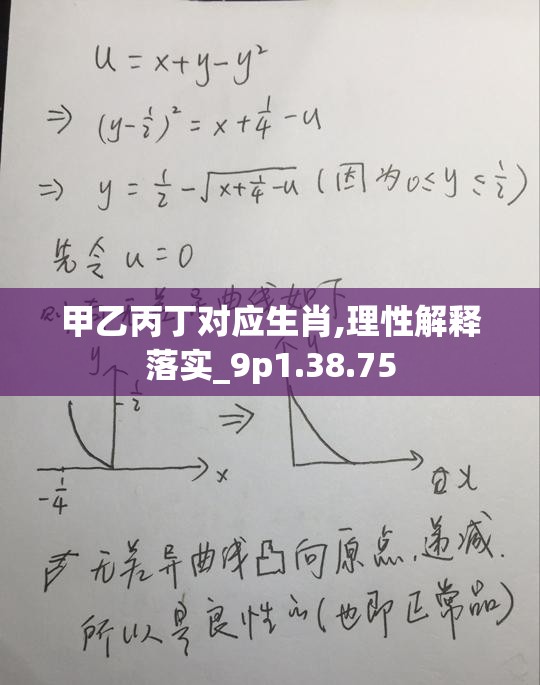 u = x+y-y²
⇒ (y-1/2)² = x+1/4-u
⇒ y = 1/2-√(x+1/4-u) (因为0≤y≤1/2)
先令 u=0
甲乙丙丁对应生肖,理性解释
落实_9p1.38.75
y
1/2
⇒
x
-1/4
x
无差异曲线凸向原点,递减.
所以是良性的(也即正常品)